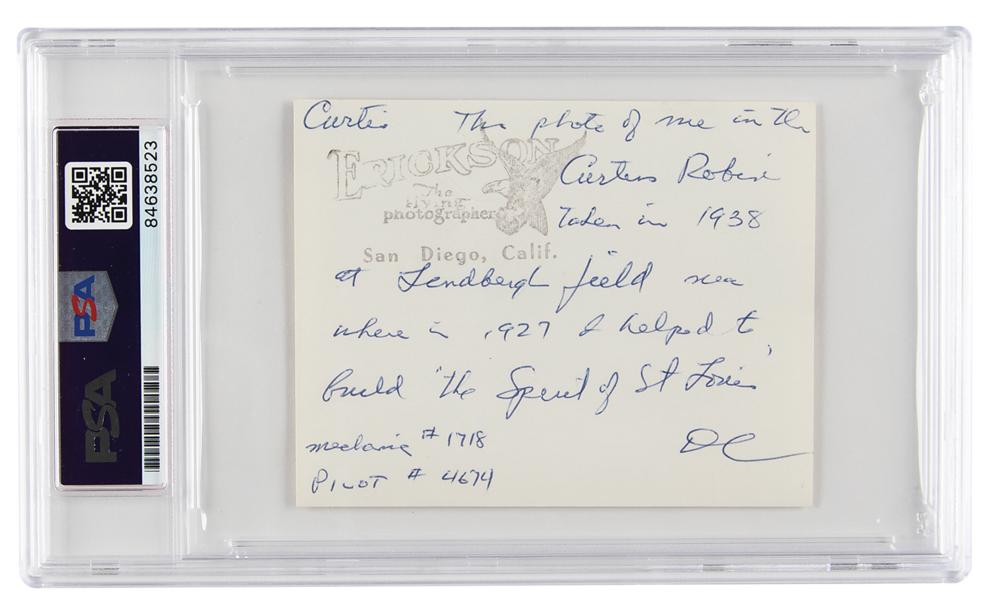 Curtis This photo of me in the
ERICKSON
The
flying
photographer
San Diego, Calif.
Curtiss Robin
Taken in 1938
at Lindbergh field near
where in 1927 I helped to
build "the Spirit of St Louis"
mechanic # 1718
DC
PILOT # 4674
84638523
PSA
PSA